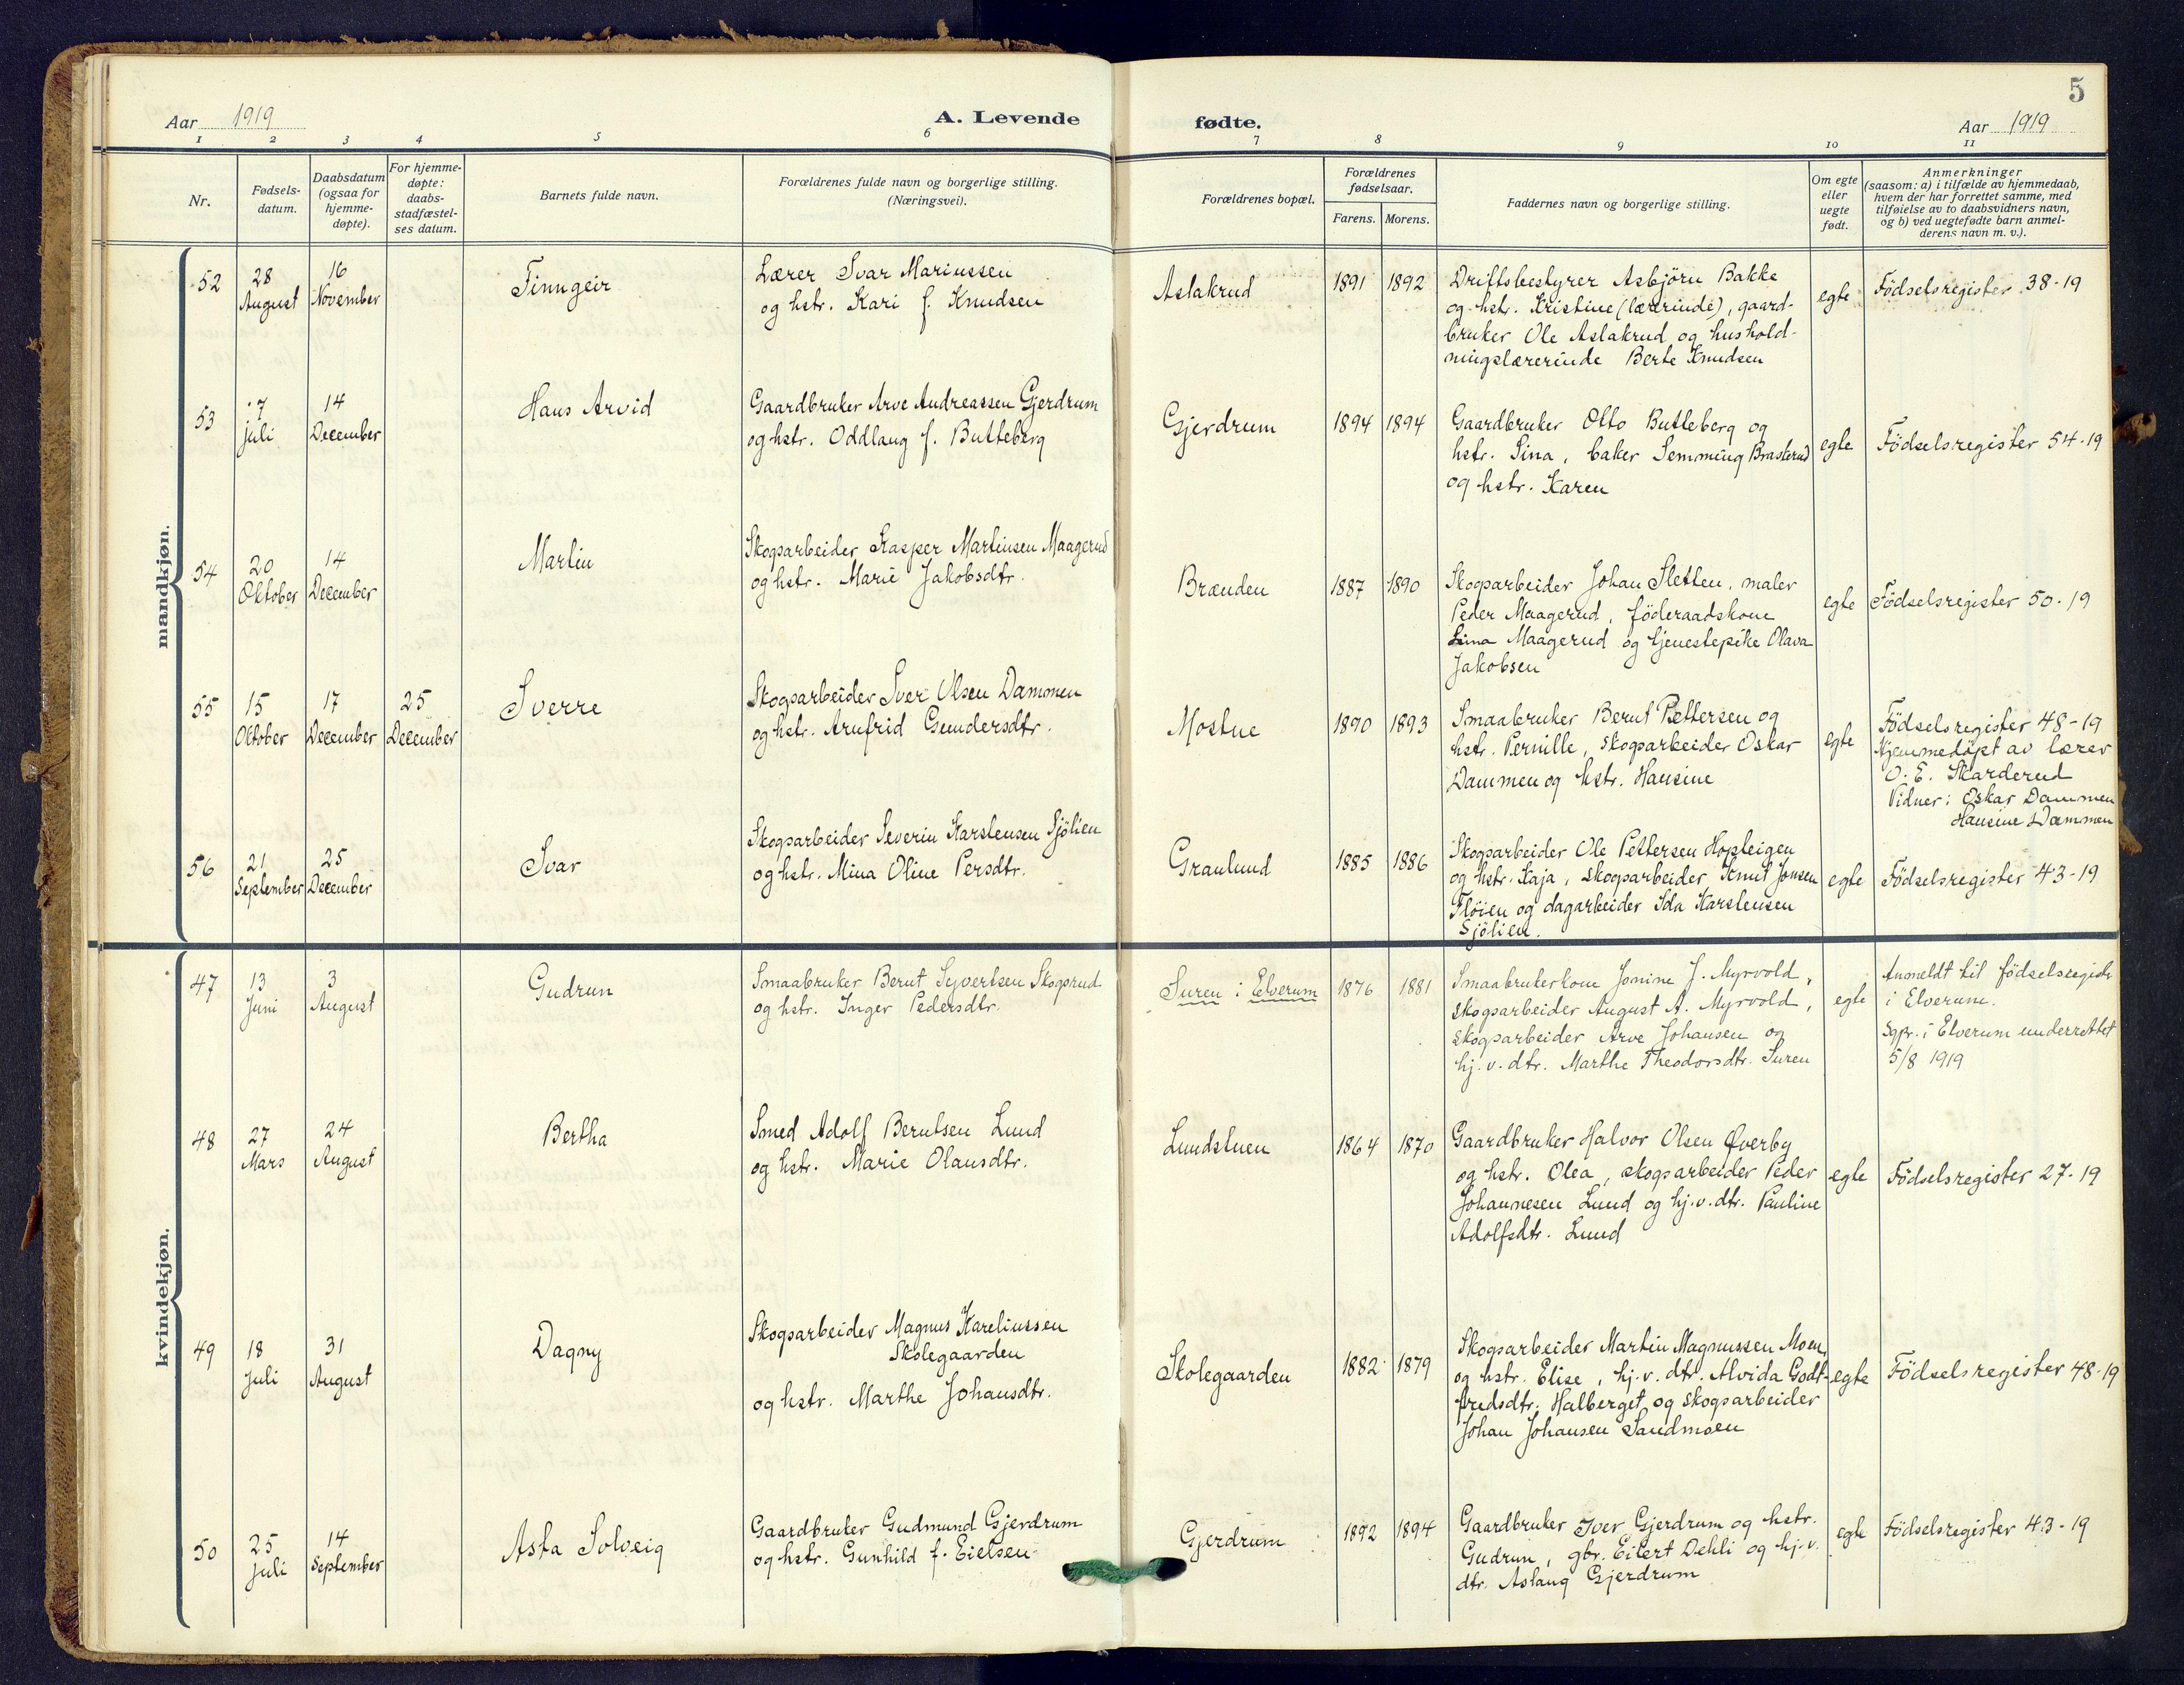 5
Aar 1919
A. Levende
fødte.
Aar 1919
1 2 3 4 5 6 7 8 9 10 11
Nr.
Fødsels-
datum.
Daabsdatum
(ogsaa for
hjemme-
døpte).
For hjemme-
døpte:
daabs-
stadfæstel-
ses datum.
Barnets fulde navn.
Forældrenes fulde navn og borgerlige stilling.
(Næringsvei).
Forældrenes bopæl.
Forældrenes
fødselsaar.
Farens. Morens.
Faddernes navn og borgerlige stilling.
Om egte
eller
uegte
født.
Anmerkninger
(saasom: a) i tilfælde av hjemmedaab,
hvem der har forrettet samme, med
tilføielse av to daabsvidners navn,
og b) ved uegtefødte barn anmel-
derens navn m. v.).
mandkjøn.
52
28
August
16
November
Finngeir
Lærer Ivar Mariussen
og hstr. Kari f. Knudsen
Aslakrud
1891 1892
Driftsbestyrer Asbjörn Bakke
og hstr. Kristine (lærerinde), gaard-
bruker Ole Aslakrud og hushold-
ningslærerinde Berte Knudsen
egte
Födselsregister 38-19
53
7
juli
14
December
Hans Arvid
Gaardbruker Arve Andreassen Gjerdrum
og hstr. Oddlaug f. Butteberg
Gjerdrum
1894 1894
Gaardbruker Otto Butteberg og
hstr. Sina, baker Semming Braskerud
og hstr. Karen
egte
Födselsregister 54-19
54
20
Oktober
14
December
Martin
Skogsarbeider Kasper Martinsen Maagerud
og hstr. Marie Jakobsdtr.
Brænden
1887 1890
Skogsarbeider Johan Sletten, maler
Peder Maagerud, föderaadskone
Lina Maagerud og tjenestepike Olava
Jakobsen
egte
Födselsregister 50-19
55
15
Oktober
17
December
25
December
Sverre
Skogsarbeider Iver Olsen Dammen
og hstr. Arnfrid Gundersdtr.
Mostue
1890 1893
Smaabruker Bernt Pettersen og
hstr. Pernille, skogsarbeider Oskar
Dammen og hstr. Hansine
egte
Födselsregister 48-19
Hjemmedöpt av lærer
O. E. Skarderud
Vidner: Oskar Dammen
Hansine Dammen
56
21
September
25
December
Ivar
Skogsarbeider Severin Karstensen Sjölien
og hstr. Mina Oline Persdtr.
Granlund
1885 1886
Skogsarbeider Ole Pettersen Hopsteigen
og hstr. Kaja, skogsarbeider Knut Jonsen
Flöien og dagarbeider Ida Karstensen
Sjölien.
egte
Födselsregister 43-19
kvindekjøn.
47
13
Juni
3
August
Gudrun
Smaabruker Bernt Syvertsen Skogsrud
og hstr. Inger Pedersdtr.
Suren i Elverum
1876 1881
Smaabrukerkone Jonine J. Myrvold,
skogsarbeider August A. Myrvold,
skogsarbeider Arve Johansen og
hj.v. dtr. Marthe Theodorsdtr. Suren
egte
Anmeldt til födselsregister
i Elverum.
Sgpr. i Elverum underrettet
5/8 1919
48
27
Mars
24
August
Bertha
Smed Adolf Berntsen Lund
og hstr. Marie Olausdtr.
Lundstuen
1864 1870
Gaardbruker Halvor Olsen Øverby
og hstr. Olea, skogsarbeider Peder
Johannesen Lund og hj.v. dtr. Pauline
Adolfsdtr. Lund
egte
Födselsregister 27-19
49
18
Juli
31
August
Dagny
Skogsarbeider Magnus Kareliussen
Skolegaarden
og hstr. Marthe Johansdtr.
Skolegaarden
1882 1879
Skogsarbeider Martin Magnussen Moen,
og hstr. Elise, hj.v. dtr. Alvida Godt-
fredsdtr. Halberget og skogsarbeider
Johan Johansen Sandmoen
egte
Födselsregister 48-19
50
25
Juli
14
September
Asta Solveig
Gaardbruker Gudmund Gjerdrum
og hstr. Gunhild f. Eielsen
Gjerdrum
1892 1894
Gaardbruker Iver Gjerdrum og hstr.
Gudrun, gbr. Eilert Dehli og hj.v.
dtr. Aslaug Gjerdrum
egte
Födselsregister 43-19